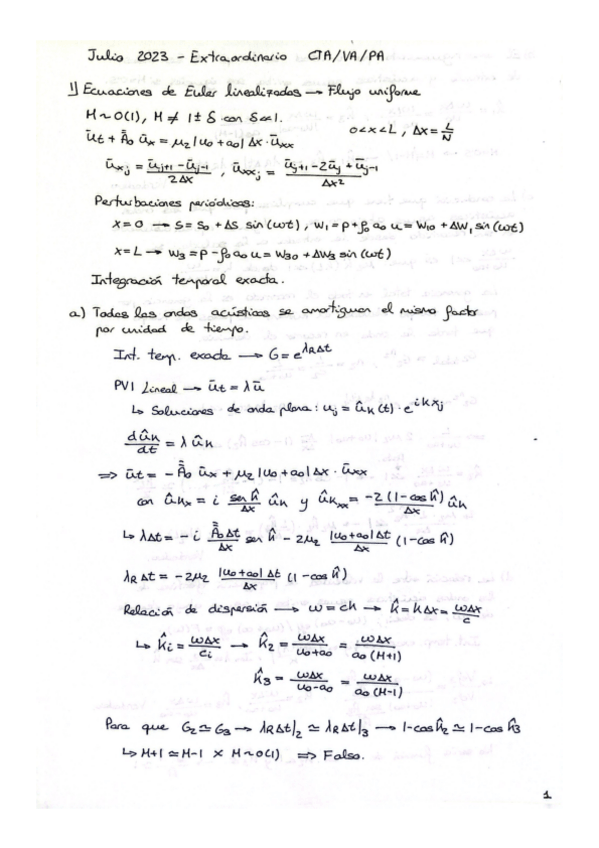 Julio 2023 - Extraordinario CTA/VA/PA
1) Ecuaciones de Euler linealizadas → Flujo uniforme
M ~ O(1), M ≠ 1 ± δ con δ ≪ 1.
0 < x < L, Δx = L/N
ūt + Ā̄o ūx = μ2 |uo + ao| Δx · ūxx
ūxj = (ūj+1 - ūj-1)/(2Δx), ūxxj = (ūj+1 - 2ūj + ūj-1)/Δx²
Perturbaciones periódicas:
x=0 → S = So + ΔS sin(ωt), W1 = p + ρo ao u = W10 + ΔW1 sin(ωt)
x=L → W3 = p - ρo ao u = W30 + ΔW3 sin(ωt)
Integración temporal exacta.
a) Todas las ondas acústicas se amortiguan el mismo factor
por unidad de tiempo.
Int. temp. exacta → G = e^λRΔt
PVI Lineal → ūt = λ ū
↳ Soluciones de onda plana: uj = ûk(t) · e^ikxj
dûk/dt = λ ûk
⇒ ūt = - Ā̄o ūx + μ2 |uo + ao| Δx · ūxx
con ûkx = i (sen k̂/Δx) ûk y ûkxx = (-2(1-cos k̂)/Δx) ûk
↳ λΔt = - i (Ā̄o Δt/Δx) sen k̂ - 2μ2 (|uo + ao| Δt/Δx) (1-cos k̂)
λR Δt = -2μ2 (|uo + ao| Δt/Δx) (1-cos k̂)
Relación de dispersión → ω = ck → k̂ = kΔx = ωΔx/c
↳ k̂i = ωΔx/ci → k̂2 = ωΔx/(uo+ao) = ωΔx/(ao(M+1))
k̂3 = ωΔx/(uo-ao) = ωΔx/(ao(M-1))
Para que G2 ≃ G3 → λRΔt|2 ≃ λRΔt|3 → 1-cos k̂2 ≃ 1-cos k̂3
↳ M+1 ≃ M-1 × M ~ O(1) ⇒ Falso.
1